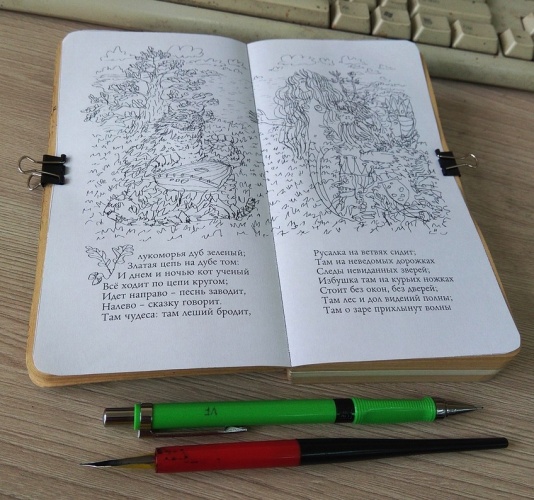 лукоморья дуб зеленый;
Златая цепь на дубе том:
И днем и ночью кот ученый
Всё ходит по цепи кругом;
Идет направо – песнь заводит,
Налево – сказку говорит.
Там чудеса: там леший бродит,
Русалка на ветвях сидит;
Там на неведомых дорожках
Следы невиданных зверей;
Избушка там на курьих ножках
Стоит без окон, без дверей;
Там лес и дол видений полны;
Там о заре прихлынут волны